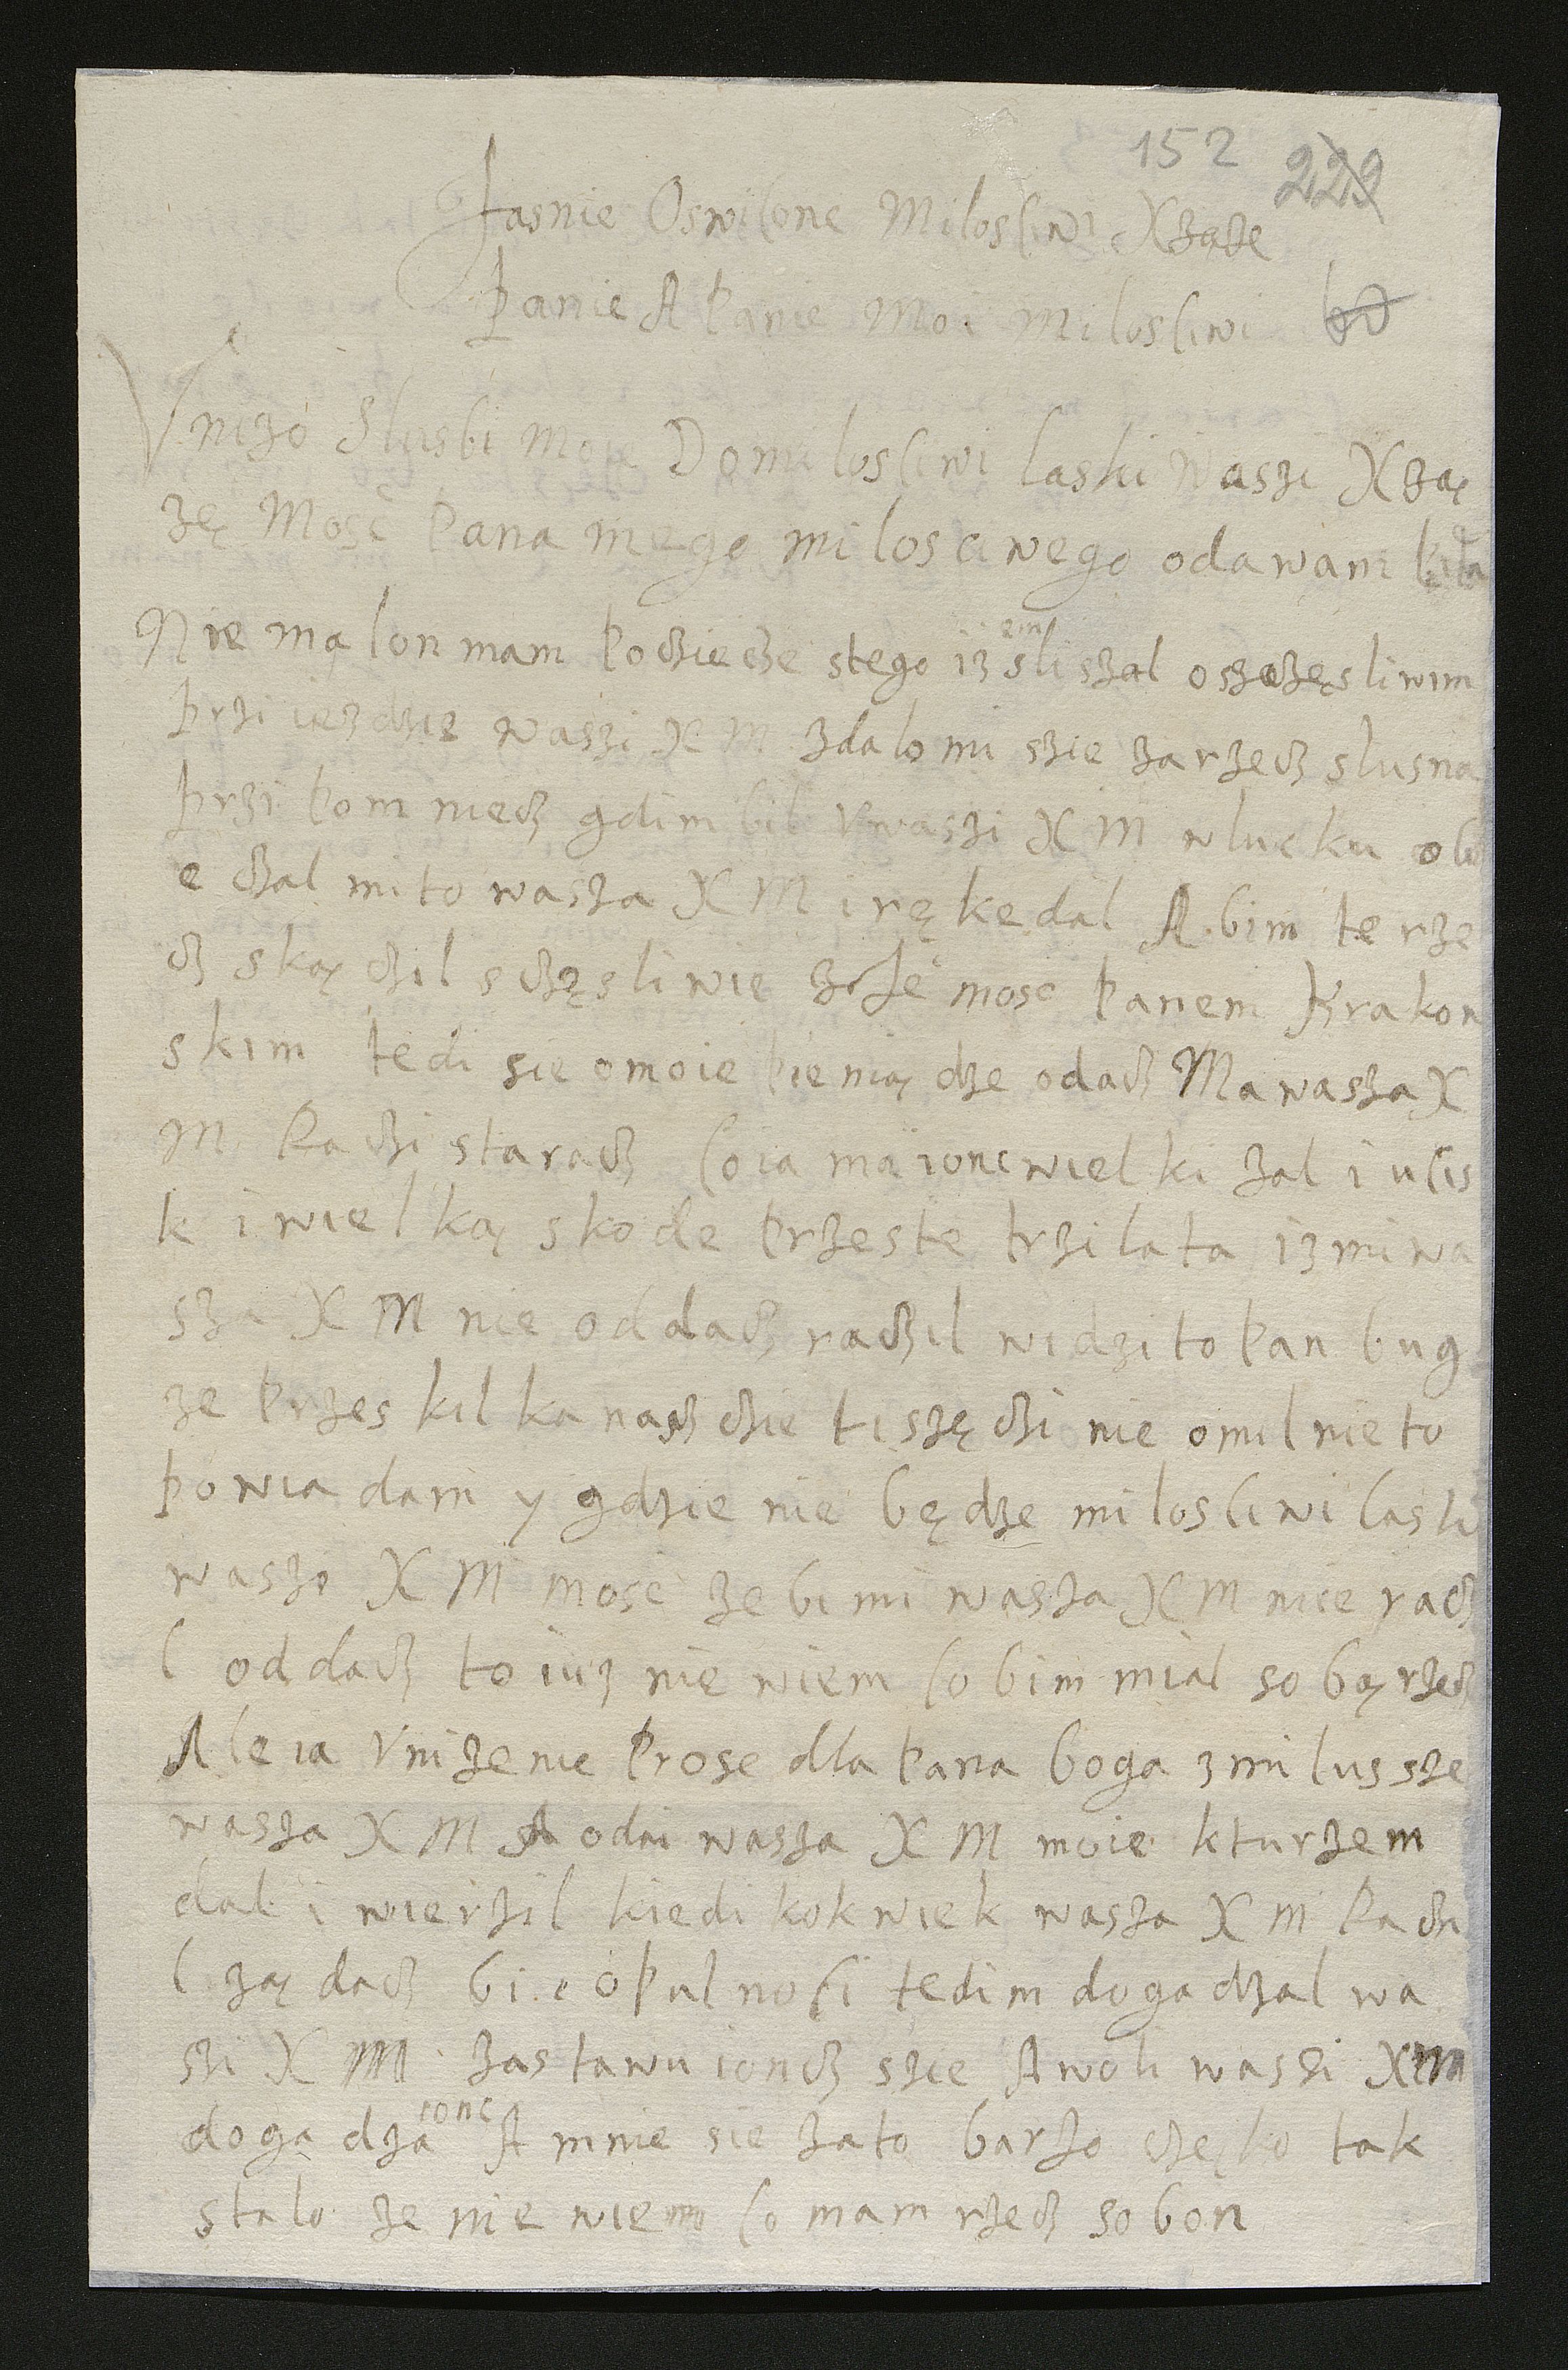 152 229
Jasnie Oswilone Milosciwi Xzaze
Panie A Panie Moi Milosciwi
Unizo Slusbi Moje Do milosciwi laski Waszi Xzaą
zę Mosc Pana mego milosciwego odawam
Nie mąlon mam Podziecze stego iz em sliszal oszczęsliwim
Przi iezdzie waszi X M zdalo mi szie za rzecz slusna
Przi Pomniecz gdim bil Vwaszi X M wlucku ob
e czal mi to wasza X M i rękę dal A bim te rze
cz skączil sczęsliwie z Je mosc Panem Krakow
skim tedi sie o moie Pieniądze odacz Ma wasza X
M Raczi staracz co ia maionc wielki zal i ucis
k i wielką skode Przeste trzi lata iz mi wa
sza X M nie oddacz raczil widzi to Pan bug
ze Przes kilkanascze tiszęczi nie omilnie to
Powiadam y gdzie nie będze milosciwi laski
waszi X M mosc ze bi mi wasza X M nie racz
l oddacz to iuz nie wiem co bim mial sobą rzecz
Ale ia Vnizenie Prosze dla Pana boga zmilus sze
wasza X M A odai wasza X M moie kturzem
dal i wierzil kiedikokwiek wasza X M Raczi
l ządacz bi e o Pulnoci tedim dogadzal wa
szi X M zastawuioncz szie A woli waszi X M
dogądza ionc A mnie sie zato barzo częko tak
stalo ze nie wiem co mam rzecz sobon